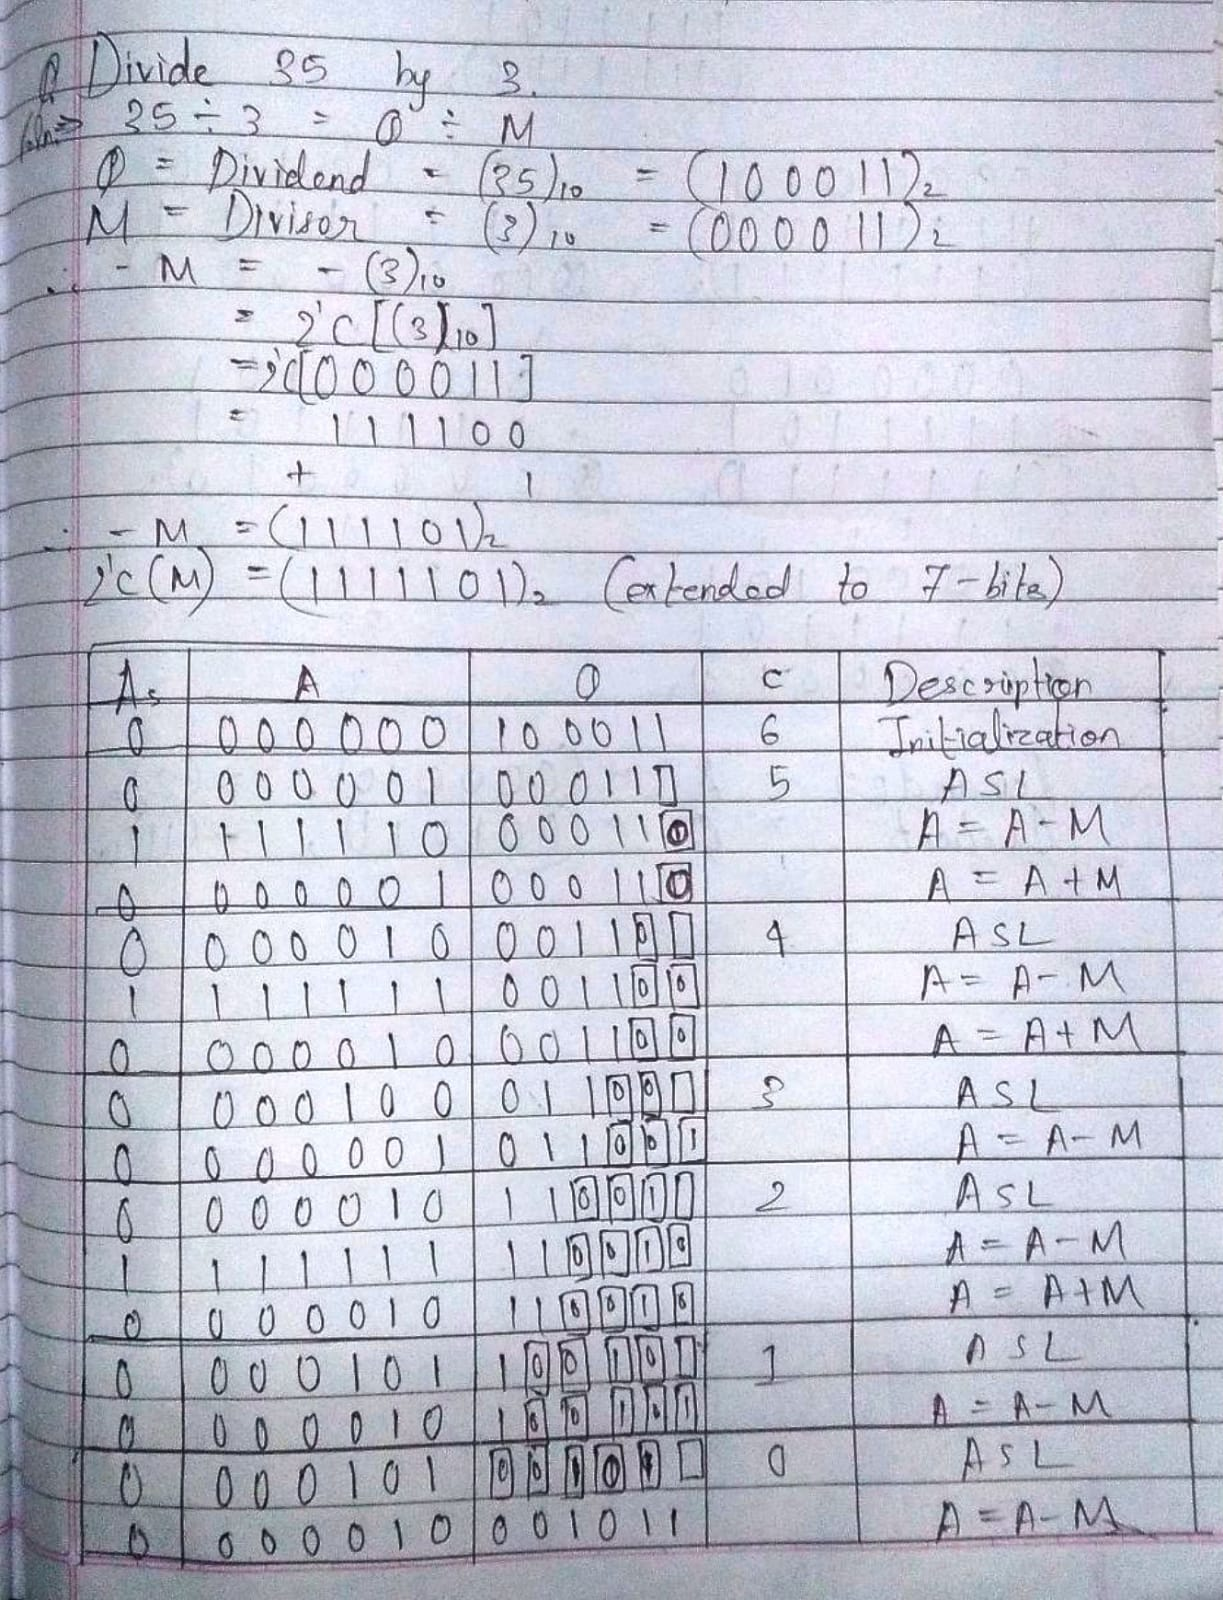 Q Divide 35 by 3.
Soln⇒ 35 ÷ 3 = Q ÷ M
Q = Dividend = (35)10 = (100011)2
M = Divisor = (3)10 = (000011)2
∴ - M = - (3)10
= 2'C [(3)10]
= 2'C[000011]
= 111100
+ 1
∴ - M = (111101)2
2'C (M) = (1111101)2 (extended to 7-bits)
As A Q C Description
0 000000 100011 6 Initialization
0 000001 00011□ 5 ASL
1 111110 000110 A = A - M
0 000001 000110 A = A + M
0 000010 00110□ 4 ASL
1 111111 001100 A = A - M
0 000010 001100 A = A + M
0 000100 01100□ 3 ASL
0 000001 011001 A = A - M
0 000010 11001□ 2 ASL
1 111111 110010 A = A - M
0 000010 110010 A = A + M
0 000101 10010□ 1 ASL
0 000010 100101 A = A - M
0 000101 00101□ 0 ASL
0 000010 001011 A = A - M